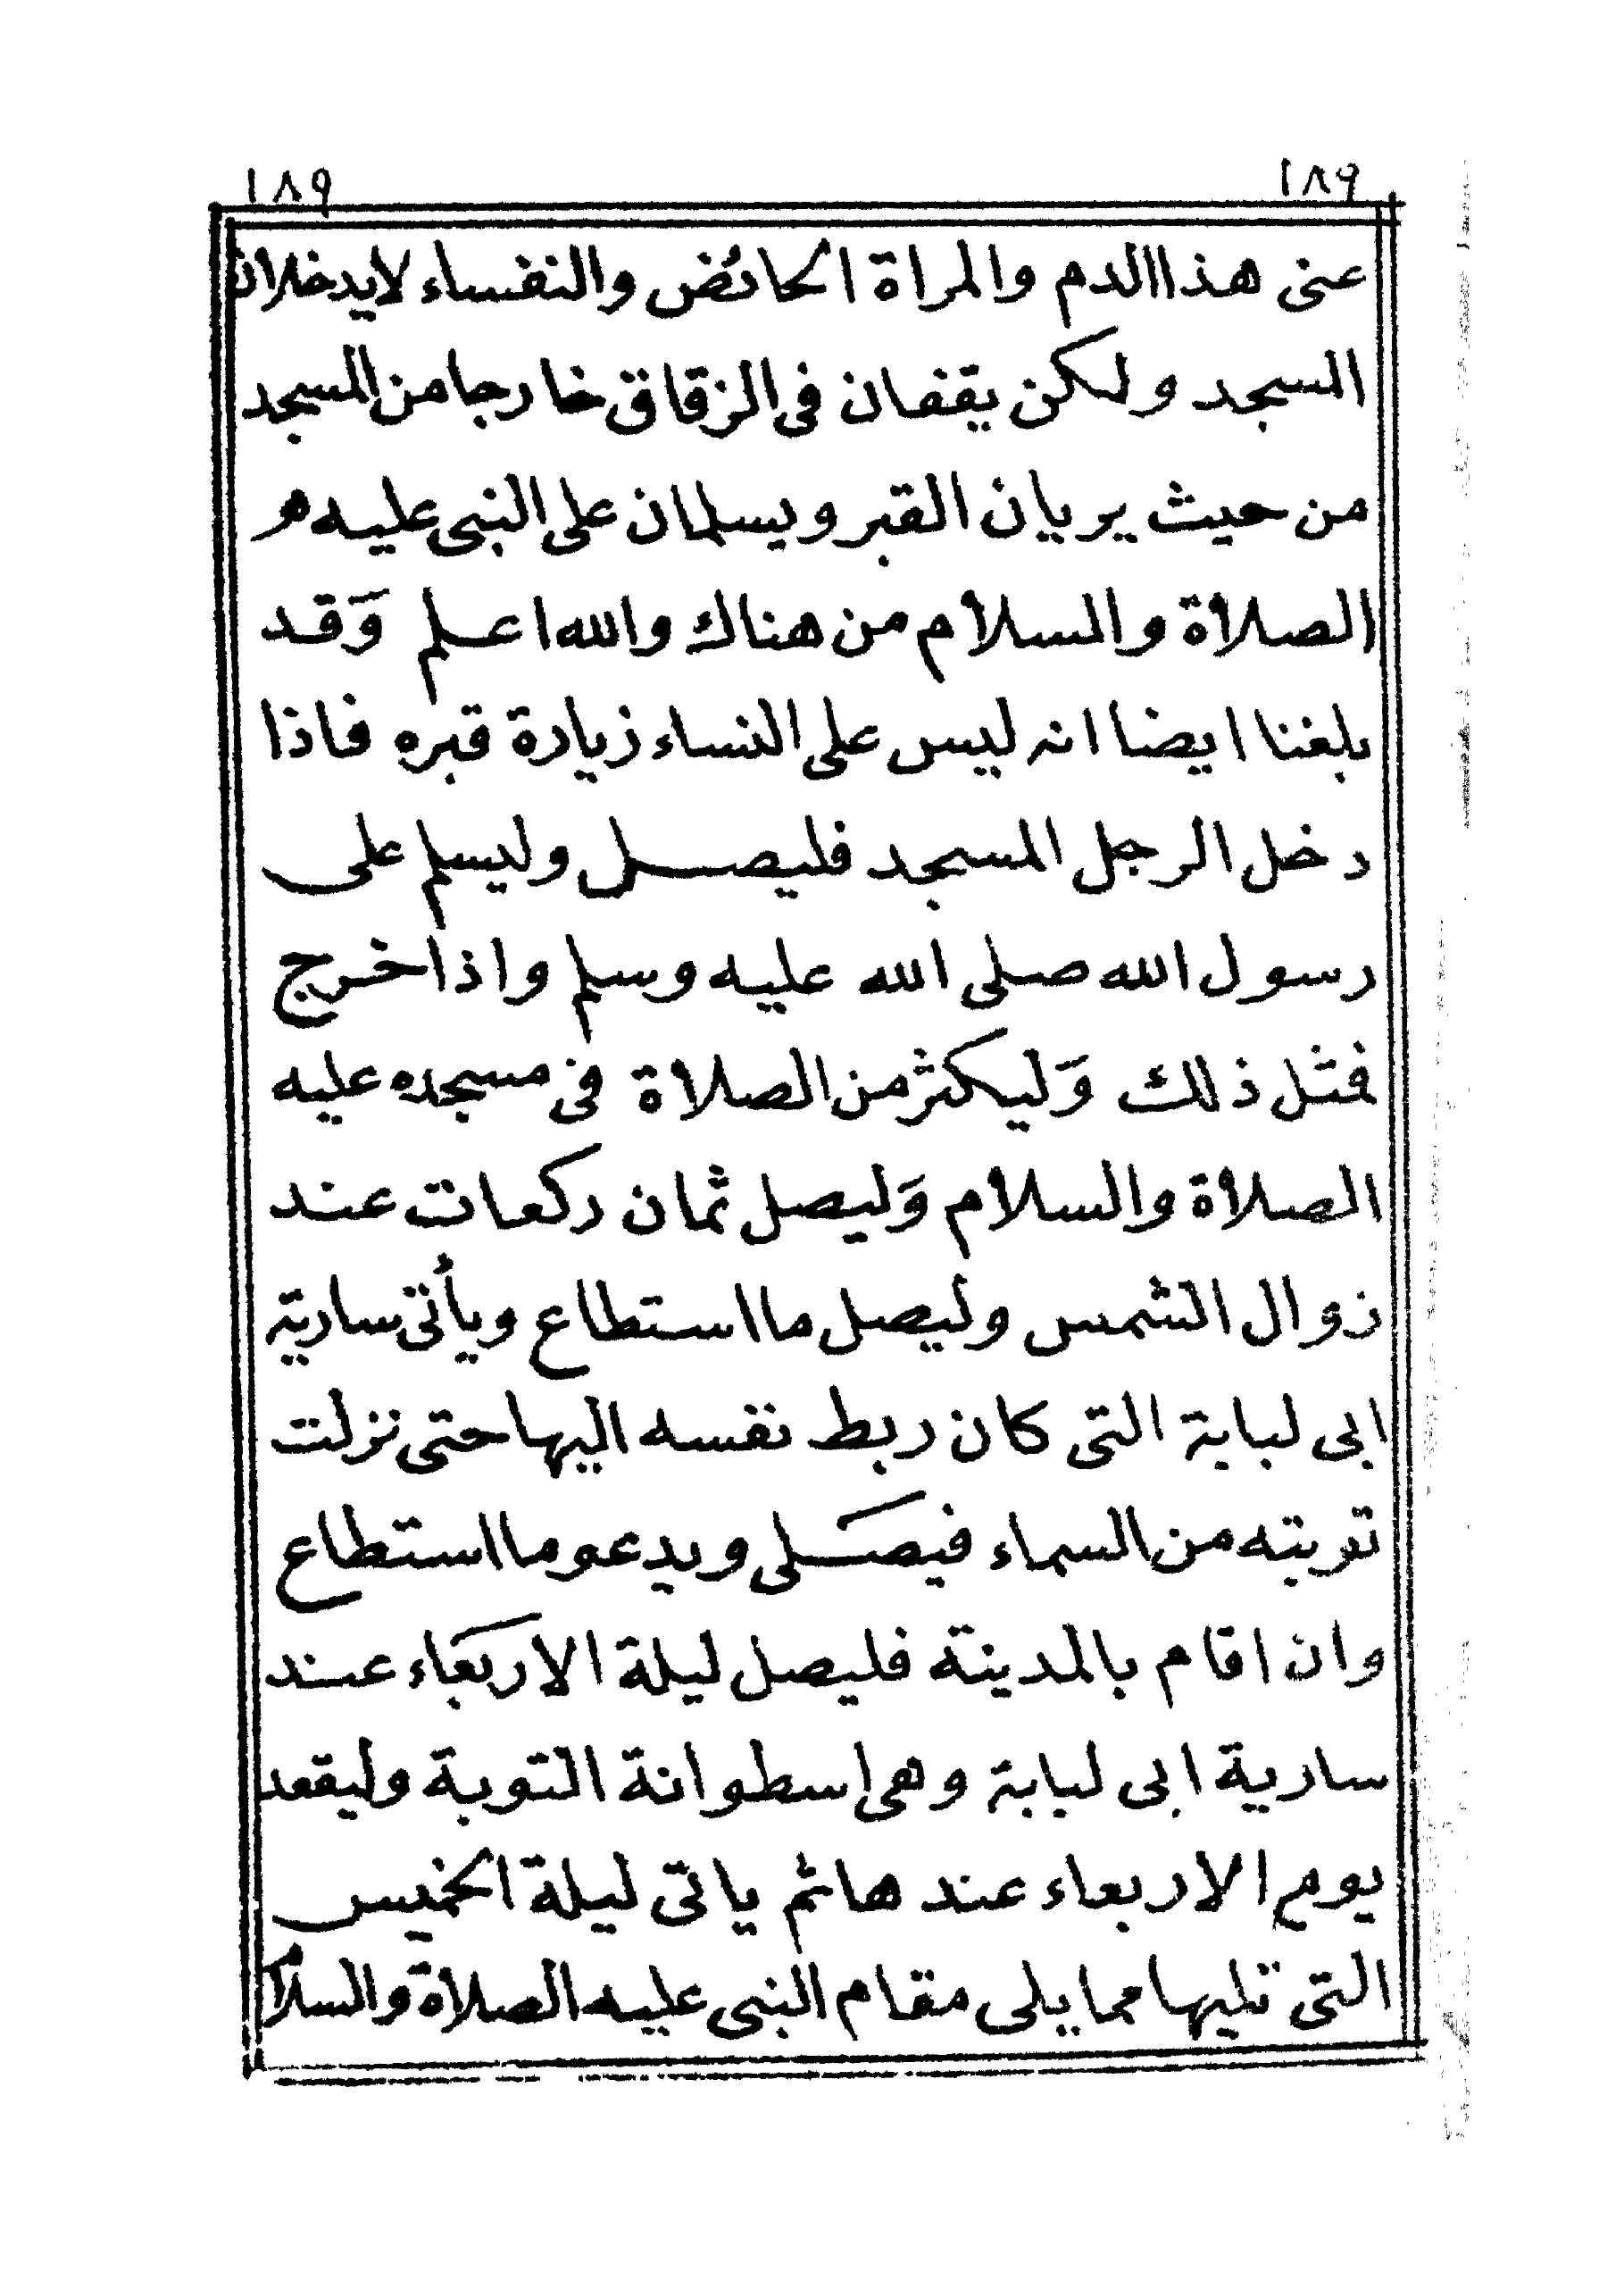 ١٨٩ ١٨٩
عنى هذا الدم والمراة الحائض والنفساء لايدخلان
المسجد ولكن يقفان فى الزقاق خارجا من المسجد
من حيث يريان القبر ويسلمان على النبى عليه
الصلاة والسلام من هناك والله اعلم وَقد
بلغنا ايضا انه ليس على النساء زيادة قبره فاذا
دخل الرجل المسجد فليصل وليسلم على
رسول الله صلى الله عليه وسلم واذا خرج
فمثل ذلك وَليكثر من الصلاة فى مسجده عليه
الصلاة والسلام وَليصل ثمان ركعات عند
زوال الشمس وليصل ما استطاع ويأتى سارية
ابى لبابة التى كان ربط نفسه اليها حتى نزلت
توبته من السماء فيصَلى ويدعو ما استطاع
وان اقام بالمدينة فليصل ليلة الاربعَاء عند
سارية ابى لبابة وهى اسطوانة التوبة وليقعد
يوم الاربعاء عند هاثم ياتى ليلة الخميس
التى تليها مما يلى مقام النبى عليه الصلاة والسلام